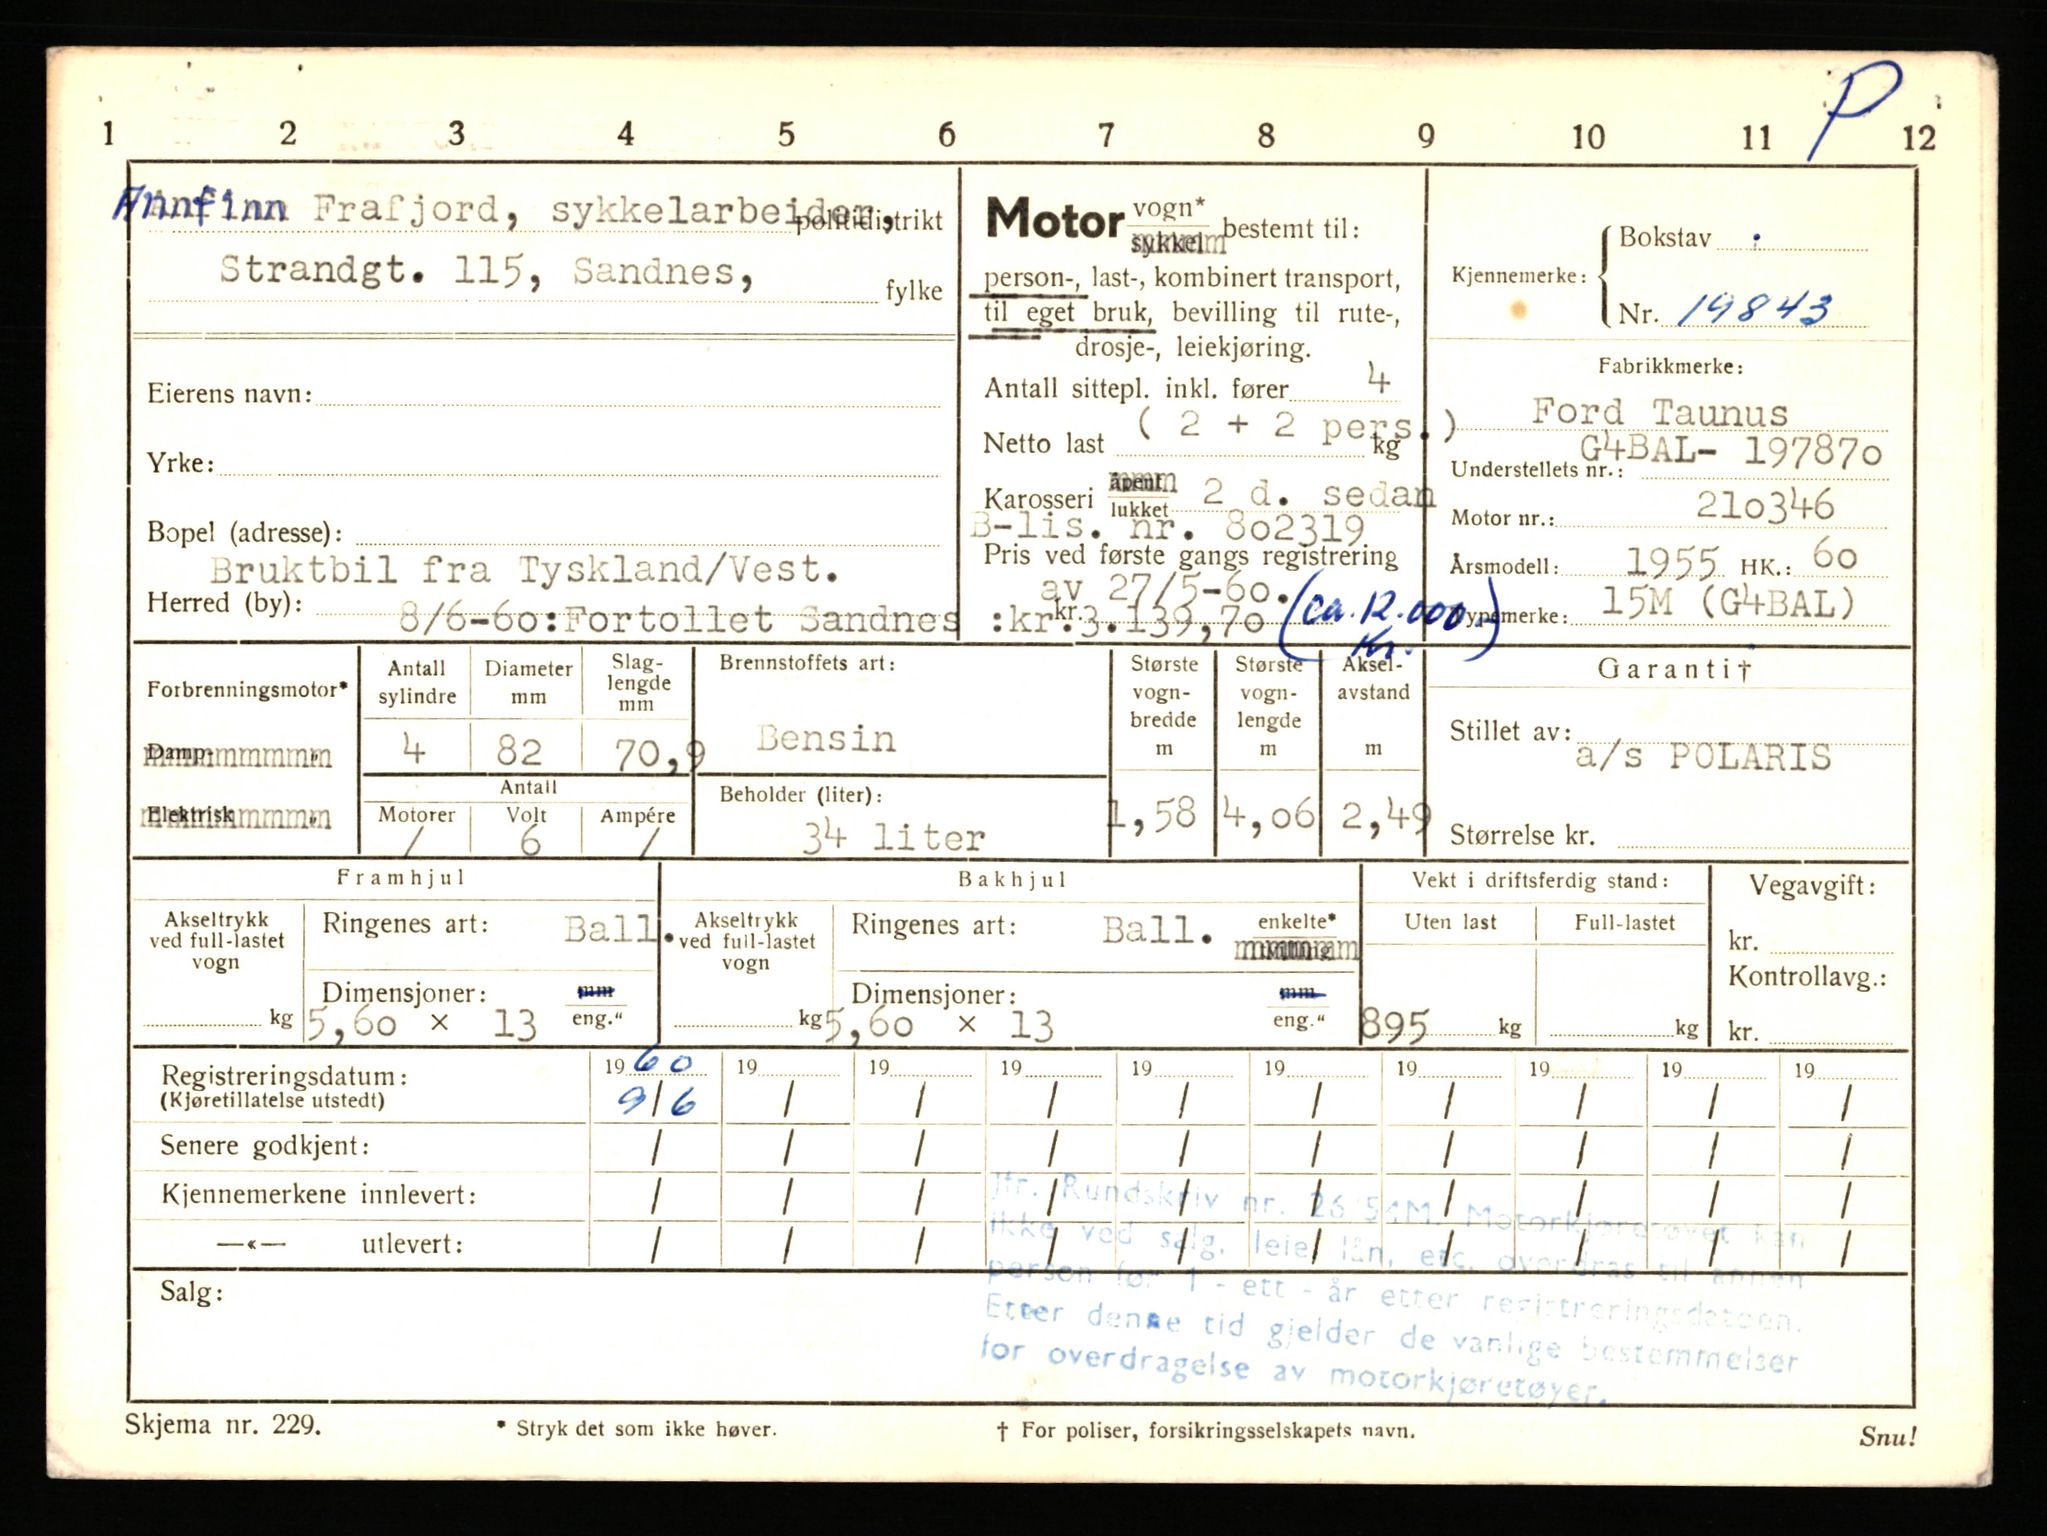 P
1 2 3 4 5 6 7 8 9 10 11 12
Annfinn Frafjord, sykkelarbeider, politidistrikt
Strandgt. 115, Sandnes, fylke
Eierens navn:
Yrke:
Bopel (adresse):
Bruktbil fra Tyskland/Vest.
Herred (by):
8/6-60:Fortollet Sandnes :kr.3.139,70 (ca. 12.000.- Kr.)
Motor vogn* sykkel bestemt til:
person-, last-, kombinert transport,
til eget bruk, bevilling til rute-,
drosje-, leiekjøring.
Antall sittepl. inkl. fører 4
( 2 + 2 pers.)
Netto last kg
Karosseri åpent lukket 2 d. sedan
B-lis. nr. 802319
Pris ved første gangs registrering
av 27/5-60.
kr.
Kjennemerke: Bokstav
Nr. 19843
Fabrikkmerke:
Ford Taunus
G4BAL- 197870
Understellets nr.:
Motor nr.: 210346
Årsmodell: 1955 HK.: 60
Typemerke: 15M (G4BAL)
Forbrenningsmotor*
Damp- „
Elektrisk „
Antall sylindre
Diameter mm
Slag-lengde mm
4 82 70,9
Antall
Motorer Volt Ampére
/ 6 /
Brennstoffets art:
Bensin
Beholder (liter):
34 liter
Største vogn-bredde m
Største vogn-lengde m
Aksel-avstand m
1,58 4,06 2,49
Garanti†
Stillet av:
a/s POLARIS
Størrelse kr.
Framhjul
Akseltrykk ved full-lastet vogn
kg
Ringenes art: Ball.
Dimensjoner: mm eng."
5,60 × 13
Bakhjul
Akseltrykk ved full-lastet vogn
kg
Ringenes art: Ball. enkelte* tvilling
Dimensjoner: mm eng."
5,60 × 13
Vekt i driftsferdig stand:
Uten last Full-lastet
895 kg kg
Vegavgift:
kr.
Kontrollavg.:
kr.
Registreringsdatum: 1960 19 19 19 19 19 19 19 19 19
(Kjøretillatelse utstedt) 9/6 / / / / / / / / /
Senere godkjent: / / / / / / / / / /
Kjennemerkene innlevert: / / / / / / / / / /
—«— utlevert: / / / / / / / / / /
Salg:
Jfr. Rundskriv nr. 26/54M. Motorkjøretøyet kan
ikke ved salg, leie, lån, etc. overdras til annen
person før 1 - ett - år etter registreringsdatoen.
Etter denne tid gjelder de vanlige bestemmelser
for overdragelse av motorkjøretøyer.
Skjema nr. 229.
* Stryk det som ikke høver.
† For poliser, forsikringsselskapets navn.
Snu!